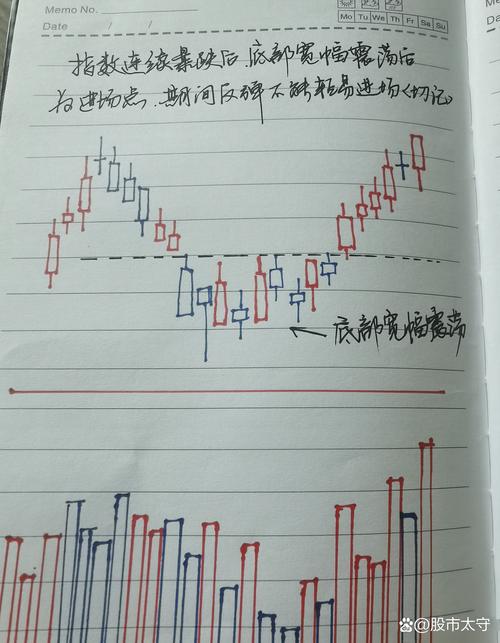 Memo No.
Mo Tu We Th Fr Sa Su
Date / /
指数连续暴跌后 底部宽幅震荡后
为进场点.期间反弹不能轻易进场(切记)
底部宽幅震荡
@股市太守